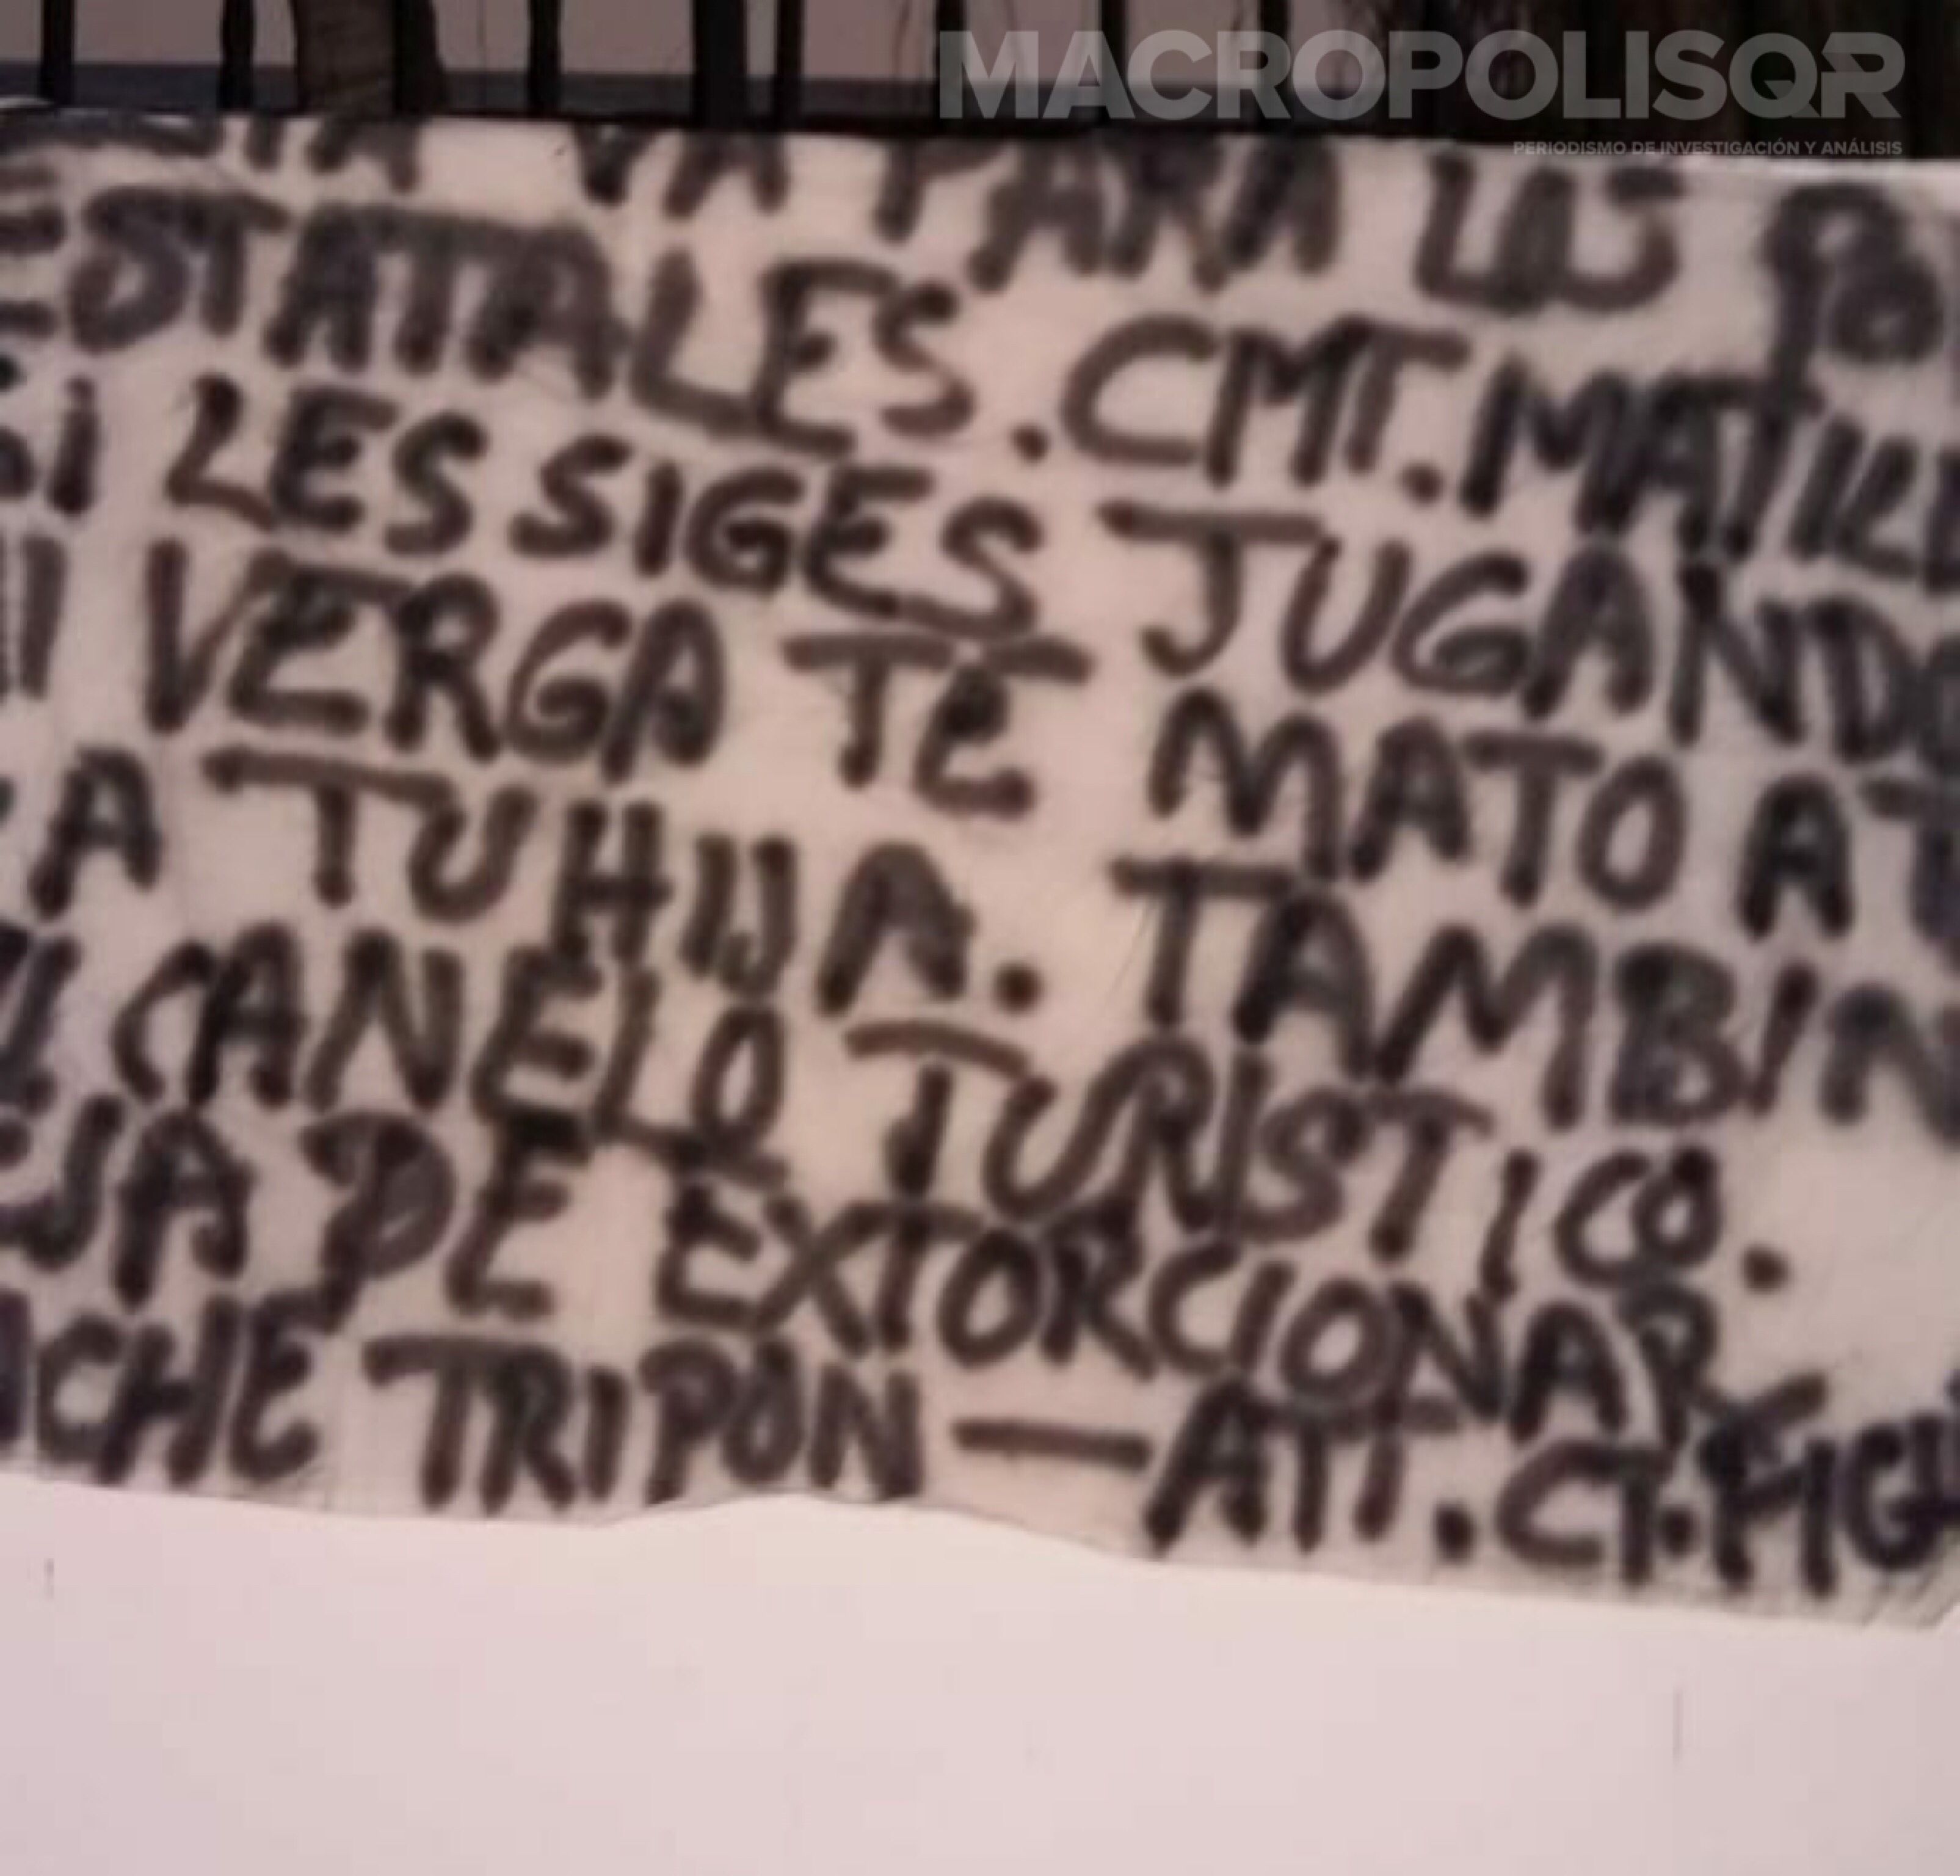 MACROPOLISQR
PERIODISMO DE INVESTIGACIÓN Y ANÁLISIS
VA PARA LAS
ESTATALES. CMT.
SI LES SIGES JUGANDO
VERGA TE MATO A
A TU HIJA. TAMBIN
CANELO TURISTICO.
DE EXTORCIONAR
TRIPON — ATT. CT.